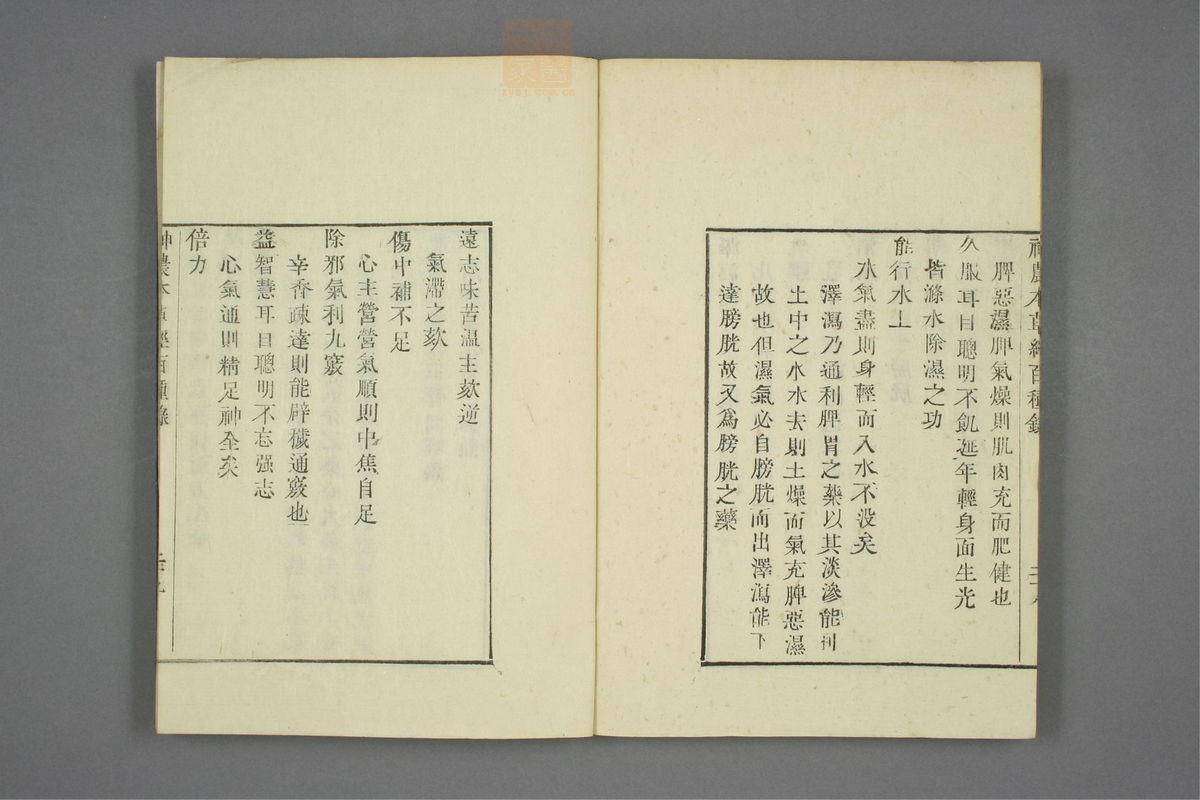 神農本草經百種錄
脾惡濕脾氣燥則肌肉充而肥健也
久服耳目聰明不飢延年輕身面生光
皆滌水除濕之功
能行水上
水氣盡則身輕而入水不没矣
澤瀉乃通利脾胃之藥以其淡滲能利
土中之水水去則土燥而氣充脾惡濕
故也但濕氣必自膀胱而出澤瀉能下
達膀胱故又爲膀胱之藥
遠志味苦温主欬逆
氣滯之欬
傷中補不足
心主營營氣順則中焦自足
除邪氣利九竅
辛香疎達則能辟穢通竅也
益智慧耳目聰明不忘强志
心氣通則精足神全矣
倍力
神農本草經百種錄